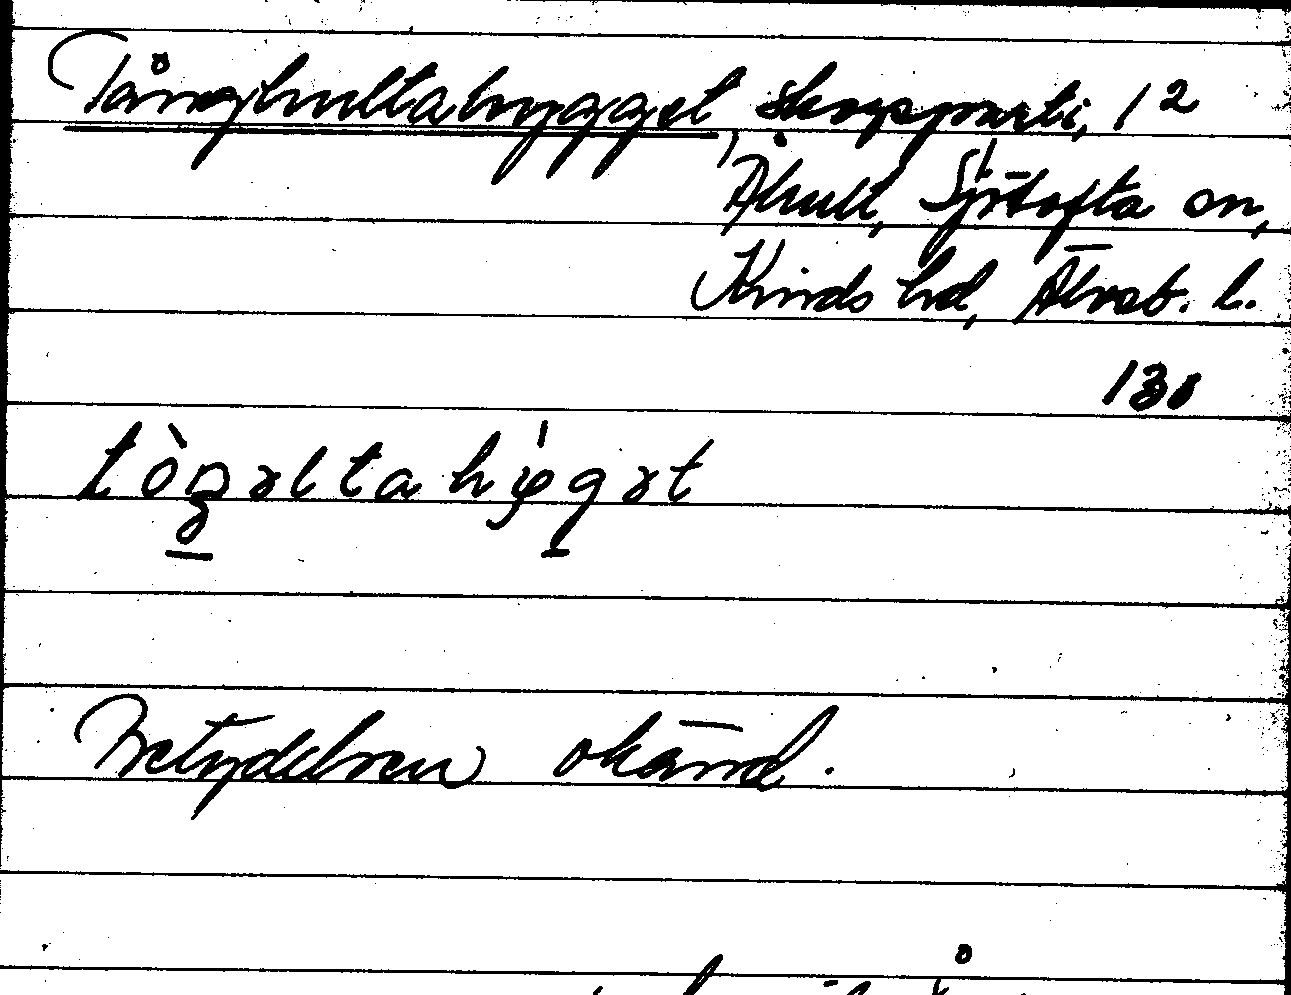 Tånghultahygget, skogsparti, 1 2
Åhult, Sjötofta sn,
Kinds hd, Älvsb. l.
130
Betydelsen okänd.